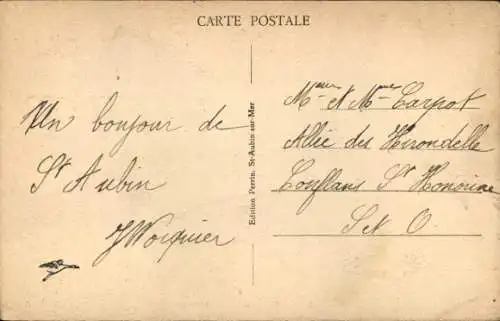 CARTE POSTALE
Un bonjour de
St Aubin
Edition Perrin, St-Aubin-sur-Mer
et Mme Carpot
Allée des Hirondelle
Conflans St Honorine
S et O